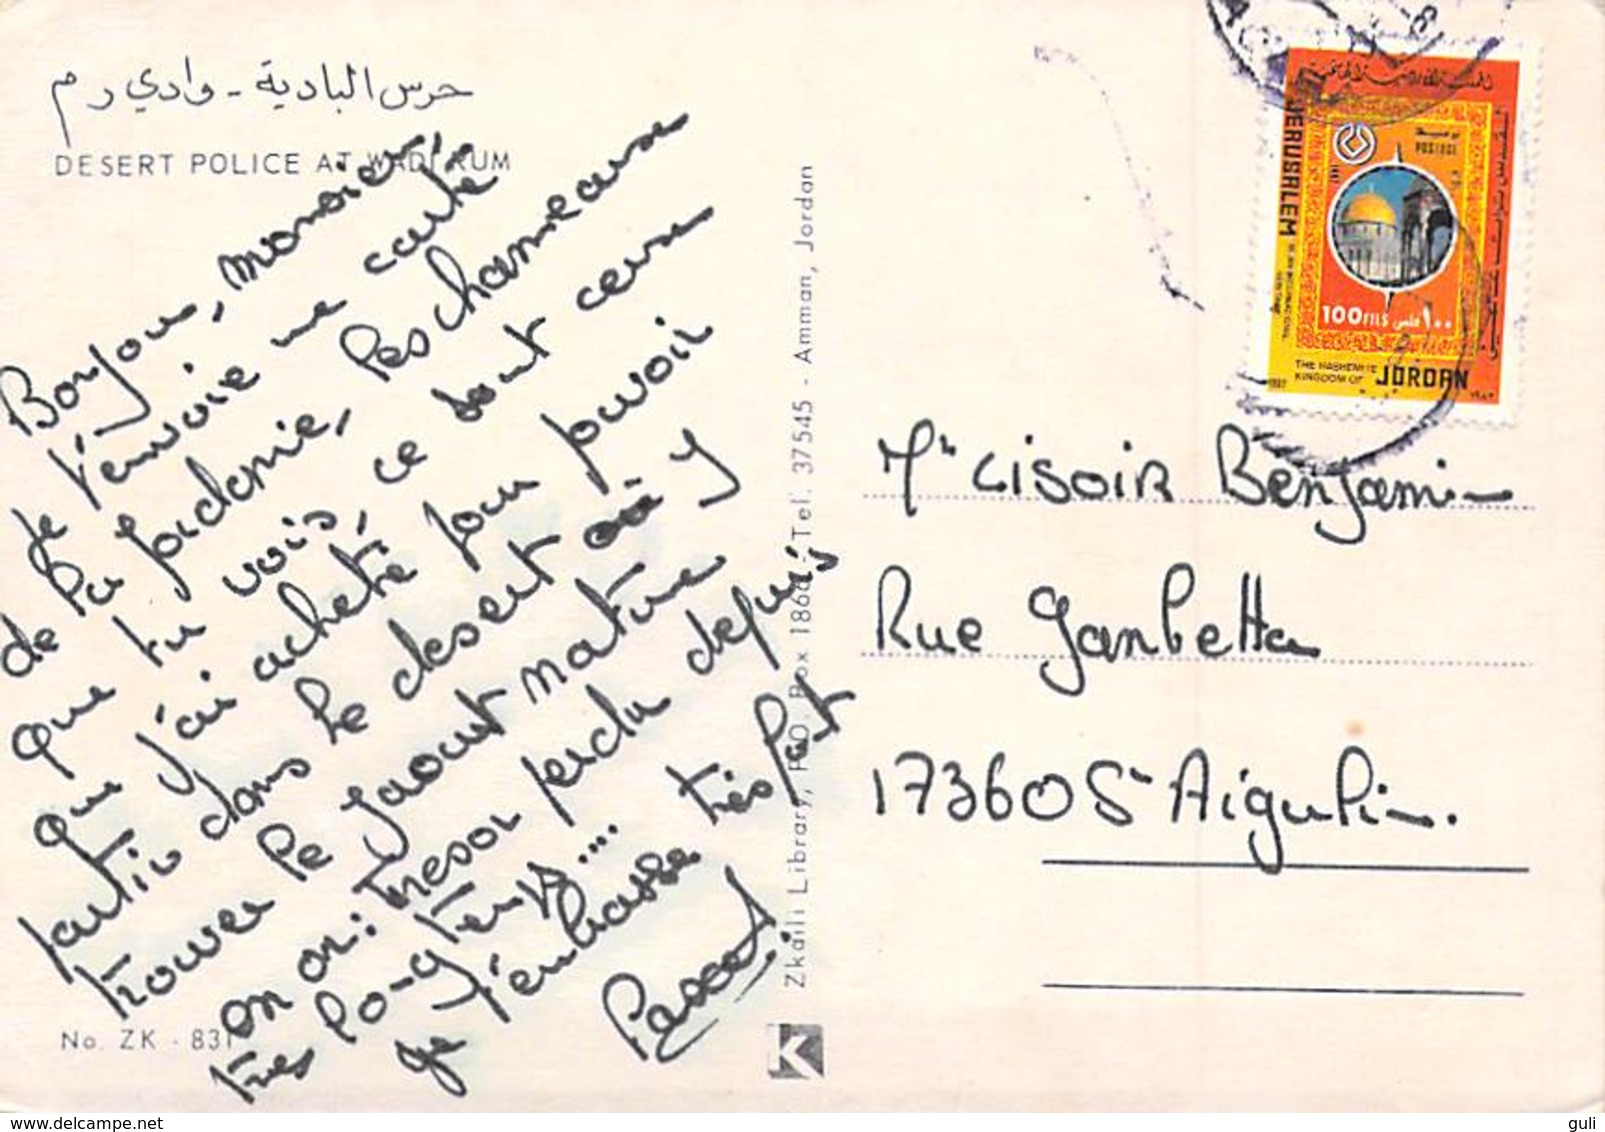 حرس البادية - وادي رم
DESERT POLICE AT WADI RUM
Bonjour, monsieur,
je t'envoie une carte
de la Jordanie, les chameaux
que tu vois, ce sont ceux
que j'ai acheté pour pouvoir
partir dans le desert où y
trouver le yaourt nature
en or: tresor perdu depuis
tres lo-g temps....
je t'embrasse très fort
Pascal
No. ZK - 831
Zkaili Library, P.O. Box 1866 - Tel. 37545 - Amman, Jordan
K
المملكة الأردنية الهاشمية
JERUSALEM
POSTAGE
100 FILS فلس ١٠٠
THE HASHEMITE
KINGDOM OF JORDAN
Mr LISOIR Benjamin
Rue Gambetta
17360 St Aigulin.
delcampe.net
guli